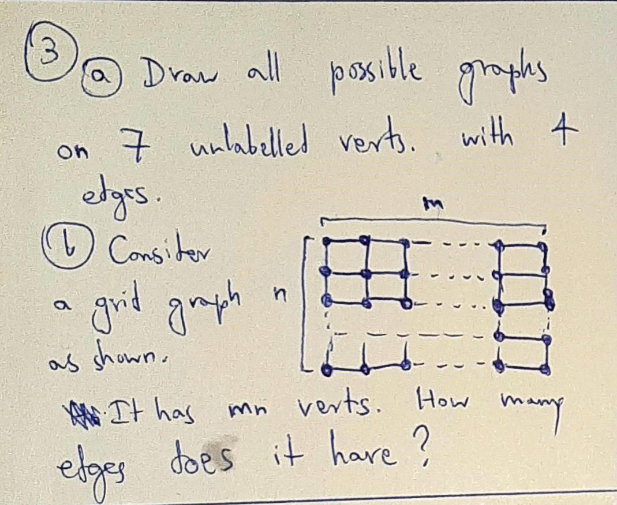 ③ ⓐ Draw all possible graphs
on 7 unlabelled verts. with 4
edges.
m
ⓑ Consider
a grid graph n
as shown.
It has mn verts. How many
edges does it have?